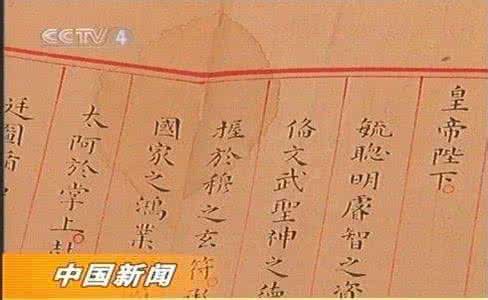 CCTV 4
皇帝陛下。
毓聰明睿智之資
俻文武聖神之德
握於穆之玄符。
國家之鴻業
太阿於掌上。
中国新闻